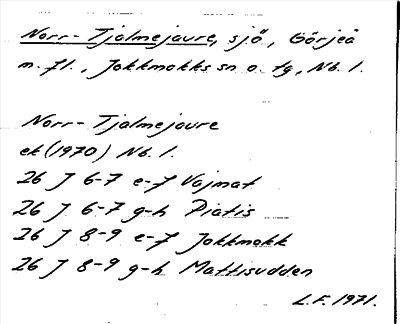 Norr-Tjalmejaure, sjö, Görjeå
m.fl., Jokkmokks sn o. tg, Nb. l.
Norr-Tjalmejaure
ek (1970) Nb. l.
26 J 6-7 e-f Vajmat
26 J 6-7 g-h Piatis
26 J 8-9 e-f Jokkmokk
26 J 8-9 g-h Mattisudden
L.F. 1971.